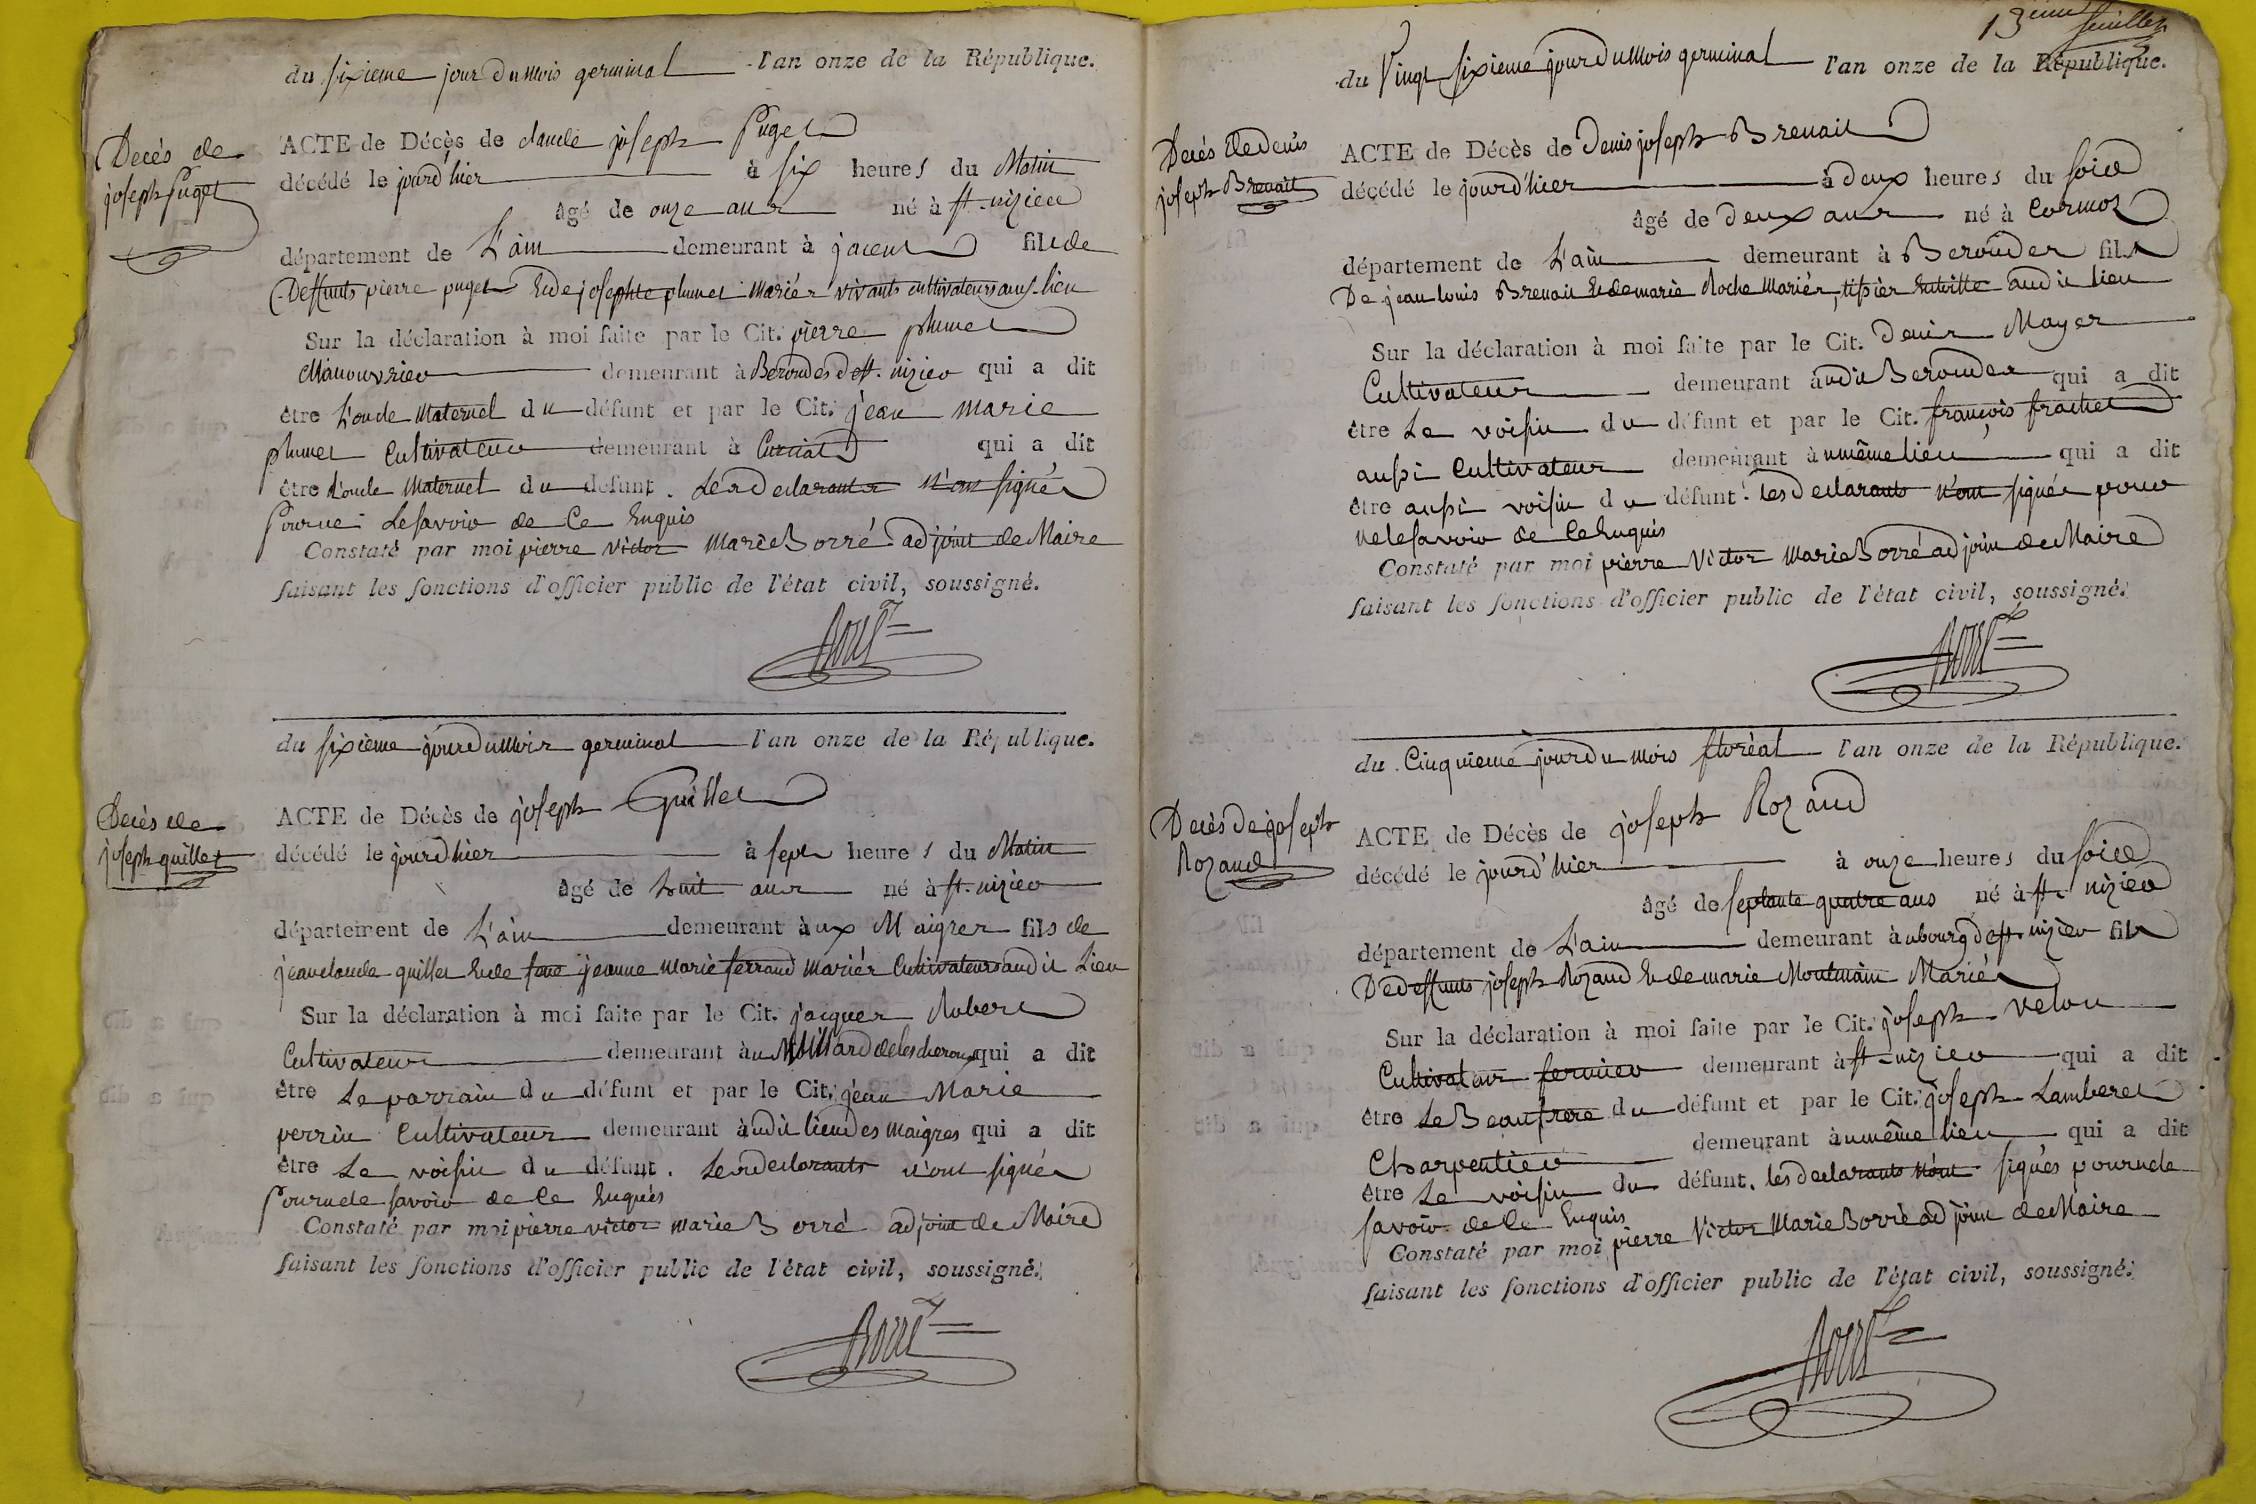 du sixieme jour du mois germinal l'an onze de la République.
Decès de
joseph Puget
ACTE de Décès de claude joseph Puget
décédé le jourd'hier à six heures du Matin
âgé de onze ans né à st. nizier
département de L'ain demeurant à jacent fils de
Deffunts pierre puget Et de josephte plumet Mariés vivants cultivateurs au s. lieu
Sur la déclaration à moi faite par le Cit. pierre plumet
Manouvrier demeurant à Beroudes de st. nizier qui a dit
être L'oncle Maternel du défunt et par le Cit. jean marie
plumet Cultivateur demeurant à Curciat qui a dit
être L'oncle Maternel du defunt. Les declarants n'ont signés
Pour ne Le savoir de Ce Enquis
Constaté par moi pierre victor Marie Borré adjoint de Maire
faisant les fonctions d'officier public de l'état civil, soussigné.
Borré
du sixième jour du mois germinal l'an onze de la République.
Decès de
joseph guillet
ACTE de Décès de joseph Guillet
décédé le jourd'hier à sept heures du Matin
âgé de huit ans né à st. nizier
département de L'ain demeurant à ux Maigres fils de
jean claude guillet Et de jeanne Marie ferrand Mariés Cultivateurs au dit Lieu
Sur la déclaration à moi faite par le Cit. jacques Robert
Cultivateur demeurant à u Villard de lescheroux qui a dit
être Le parrain du défunt et par le Cit. jean Marie
perrin Cultivateur demeurant à udit lieu des Maigres qui a dit
être Le voisin du défunt. Les declarants n'ont signés
Pour ne le savoir de Ce Enquis
Constaté par moi pierre victor marie Borré adjoint de Maire
faisant les fonctions d'officier public de l'état civil, soussigné.
Borré
13eme feuillet
du Vingt sixieme jour du Mois germinal l'an onze de la République.
Decés de denis
joseph Brevait
ACTE de Décès de Denis joseph Brevait
décédé le jourd'hier à deux heures du soir
âgé de deux ans né à Cormoz
département de L'ain demeurant à Beroudes fils
De jean louis Brevait Et de marie Roche Mariés, tissier au dit lieu
Sur la déclaration à moi faite par le Cit. Denis Mayer
Cultivateur demeurant à udit Beroudes qui a dit
être Le voisin du défunt et par le Cit. françois frachet
aussi Cultivateur demeurant à u même lieu qui a dit
être aussi voisin du défunt. les declarants n'ont signés pour
ne le savoir de Ce Enquis
Constaté par moi pierre Victor Marie Borré adjoint de Maire
faisant les fonctions d'officier public de l'état civil, soussigné.
Borré
du Cinquieme jour du mois floréal l'an onze de la République.
Decès de joseph
Rozand
ACTE de Décès de joseph Rozand
décédé le jourd'hier à onze heures du soir
âgé de septante quatre ans né à st. nizier
département de L'ain demeurant à u bourg de st. nizier fils
De deffunts joseph Rozand Et de marie Montmain Mariés
Sur la déclaration à moi faite par le Cit. joseph velon
Cultivateur fermier demeurant à st. nizier qui a dit
être Le Beaufrere du défunt et par le Cit. joseph Lamberet
Charpentier demeurant à u même lieu qui a dit
être Le voisin du défunt. les declarants n'ont signés pour ne le
savoir de Ce Enquis
Constaté par moi pierre Victor Marie Borré adjoint de Maire
faisant les fonctions d'officier public de l'état civil, soussigné.
Borré